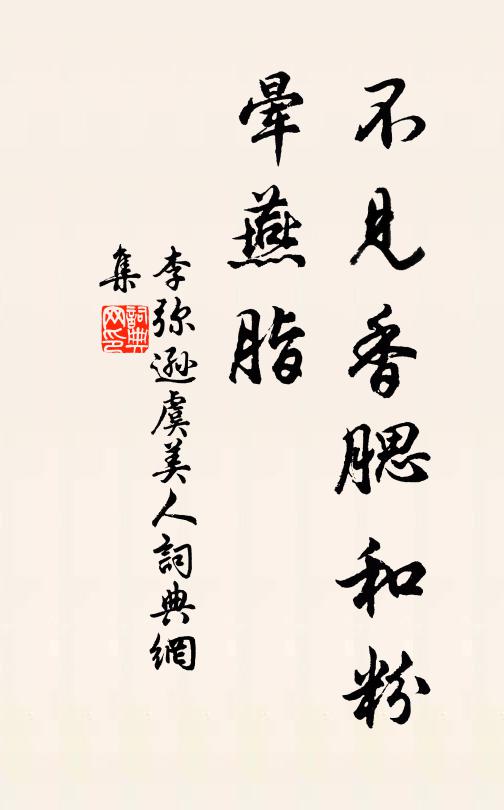 不見香腮和粉
暈燕脂
李弥遜虞美人詞典網
集
詞典
网印